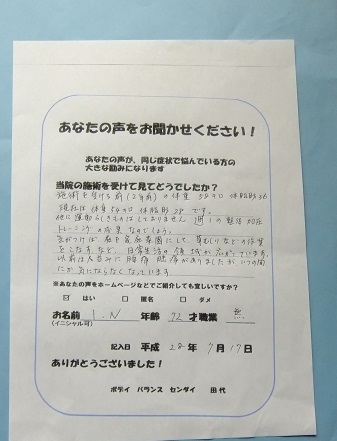 あなたの声をお聞かせください！
あなたの声が、同じ症状で悩んでいる方の
大きな励みになります
当院の施術を受けて見てどうでしたか？
施術を受ける前(2年前)の体重 58キロ 体脂肪36
現在は体重54キロ 体脂肪28です。
他に運動らしきものはしておりません 通いの整体 加圧
トレーニングの成果なのでしょう。
気がつけば 着に家庭菜園にして、草むしりなどの作業
をこなすなど、日常生活の領域が広がっています。
以前は人並みに腰痛 膝痛がありましたがいつの間
にか気にならなくなっています。
※あなたの声をホームページなどでご紹介しても宜しいですか？
☑ はい □ 匿名 □ ダメ
お名前 I.N 年齢 72 才 職業 無
(イニシャル可)
記入日 平成 28 年 7月 17日
ありがとうございました！
ボディ バランス センダイ 田代